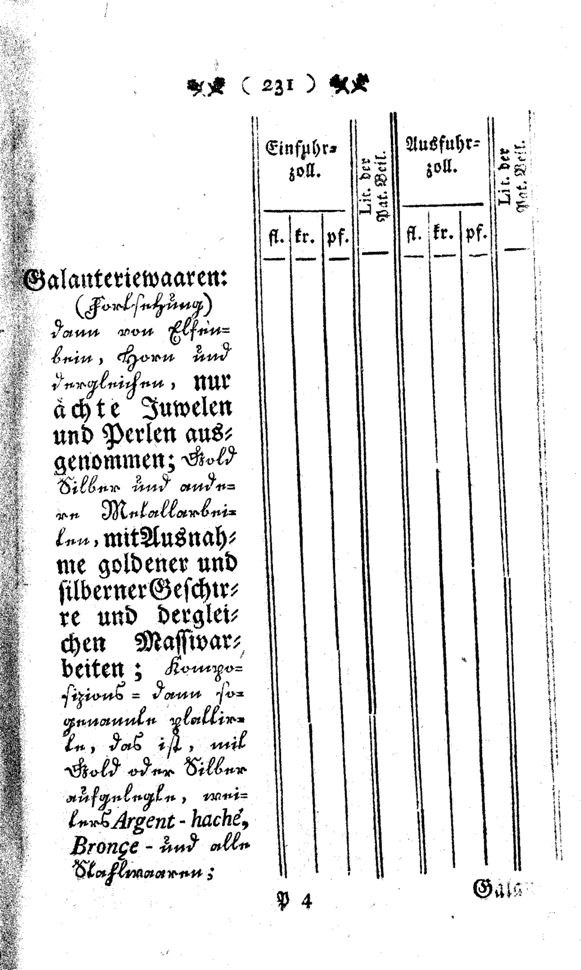 ( 231 )
Einfuhr=
zoll.
Lit. der
Pat. Beil.
Ausfuhr=
zoll.
Lit. der
Pat. Beil.
fl. kr. pf. fl. kr. pf.
Galanteriewaaren:
(Fortsetzung)
dann von Elfen=
bein, Horn und
dergleichen, nur
ächte Juwelen
und Perlen aus=
genommen; Gold
Silber und ande=
re Metallarbei=
ten, mit Ausnah=
me goldener und
silberner Geschir=
re und derglei=
chen Massivar=
beiten; Kompo=
sizions = dann so=
genannte plattir=
te, das ist, mit
Gold oder Silber
aufgelegte, wei=
ters Argent-haché,
Bronçe - und alle
Stahlwaaren;
P 4
Galan